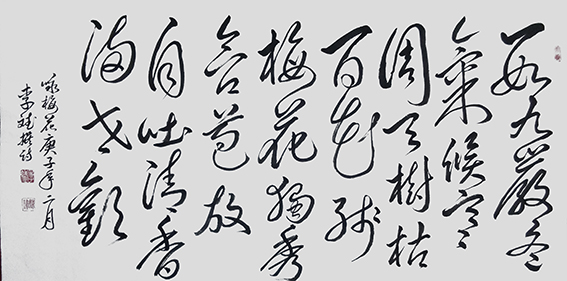 數九嚴冬
氣候寒
周天樹枯
百花殘
梅花獨秀
含苞放
自吐清香
滿世歡
咏梅花庚子年二月
李